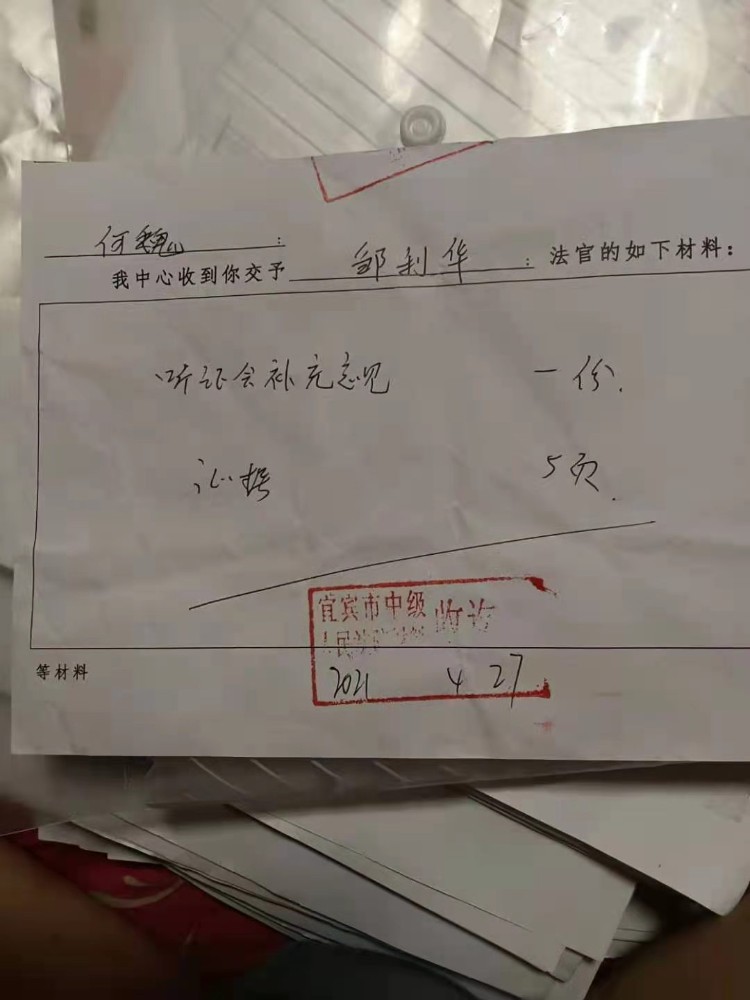 何魏：
我中心收到你交予 邹利华 ：法官的如下材料：
听证会补充意见 一份.
证据 5页.
宜宾市中级 收讫
人民法院
2021 4 27
等材料